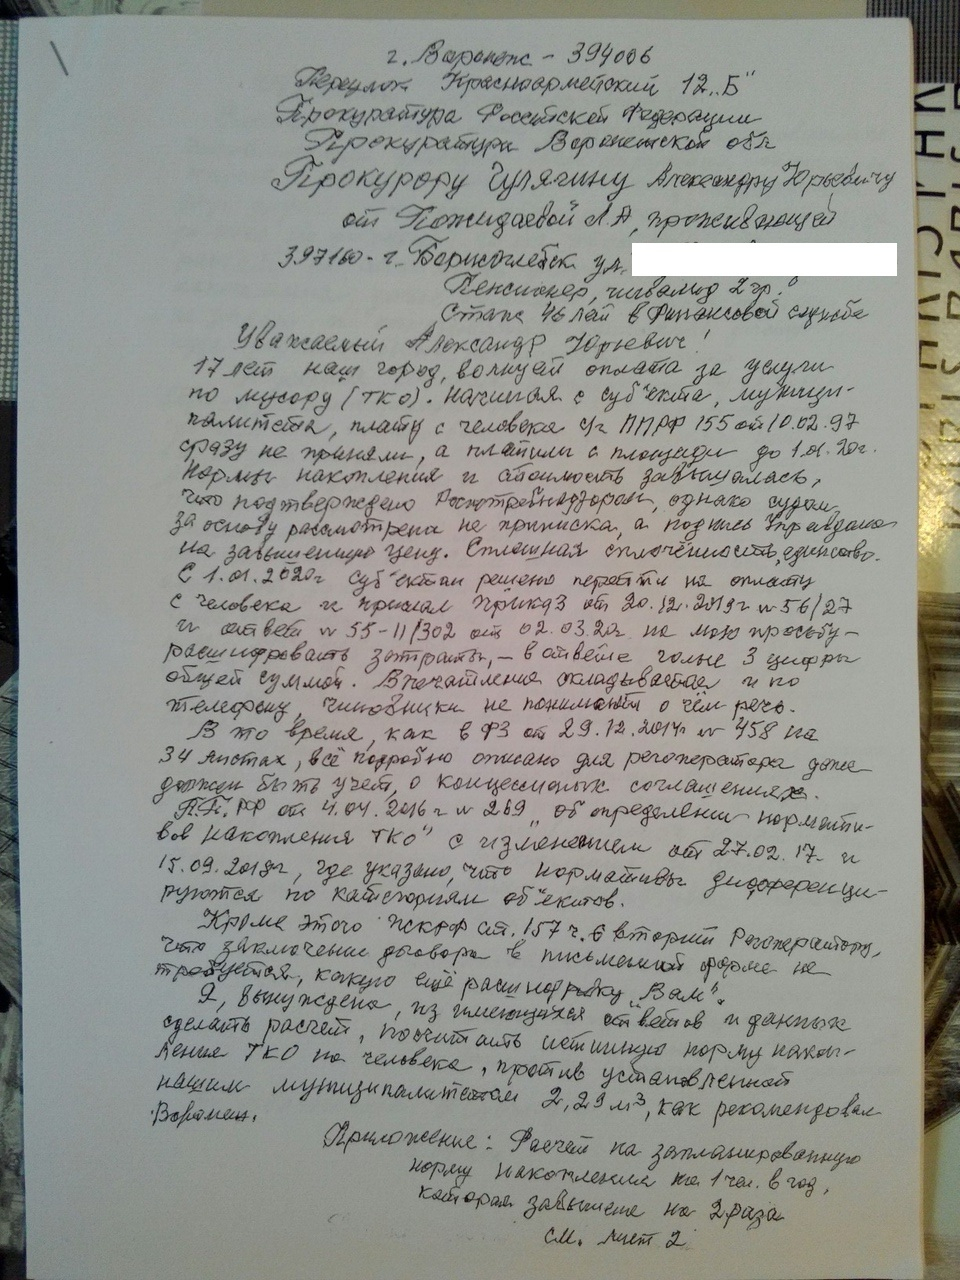 г. Воронеж - 394006
Переулок Красноармейский 12 „Б"
Прокуратура Российской Федерации
Прокуратура Воронежской обл
Прокурору Гулягину Александру Юрьевичу
от Пожидаевой Л.А, проживающей
397160 - г. Борисоглебск ул.
Пенсионер, инвалид 2 гр.
Стаж 46 лет в финансовой службе
Уважаемый Александр Юрьевич!
17 лет наш город, волнует оплата за услуги
по мусору (ТКО). Начиная с суб'екта, муници-
палитета, плату с человека с/г ППРФ 155 от 10.02.97
сразу не приняли, а платили с площади до 1.01.20г.
Нормы накопления и стоимость завышалась,
что подтверждено Роспотребнадзором, однако судом
за основу рассмотрена не приписка, а подпись
на завышенную цену. Сплошная сплочённость, единство.
С 1.01.2020г суб'ектом решено перейти на оплату
с человека и принял Приказ от 20.12.2019г № 56/27
и ответ № 55-11/302 от 02.03.20г. на мою просьбу -
расшифровать затраты, - в ответе только 3 цифры
общей суммой. Впечатление складывается и по
телефону, чиновники не понимают о чём речь.
В то время, как в ФЗ от 29.12.2014г № 458 на
34 листах, всё подробно описано для регоператора даже
должен быть учет, о концессионных соглашениях.
П.П. РФ от 4.04.2016г № 269 „об определении нормати-
вов накопления ТКО" с изменением от 27.02.17 и
15.09.2018г, где указано, что нормативы дифференци-
руются по категориям об'ектов.
Кроме этого ЖК РФ ст. 157 ч. 6 вторит Регоператору,
что заключение договора в письменной форме не
требуется, какую ещё расшифровку „Вам".
Я, вынуждена, из имеющихся ответов и данных
сделать расчет, посчитать истинную норму накоп-
ления ТКО на человека, против установленной
нашим муниципалитетом 2,29 м³, как рекомендовал
Воронеж.
Приложение: Расчет на запланированную
норму накопления на 1 чел. в год,
которая завышена на 2 раза
см. лист 2